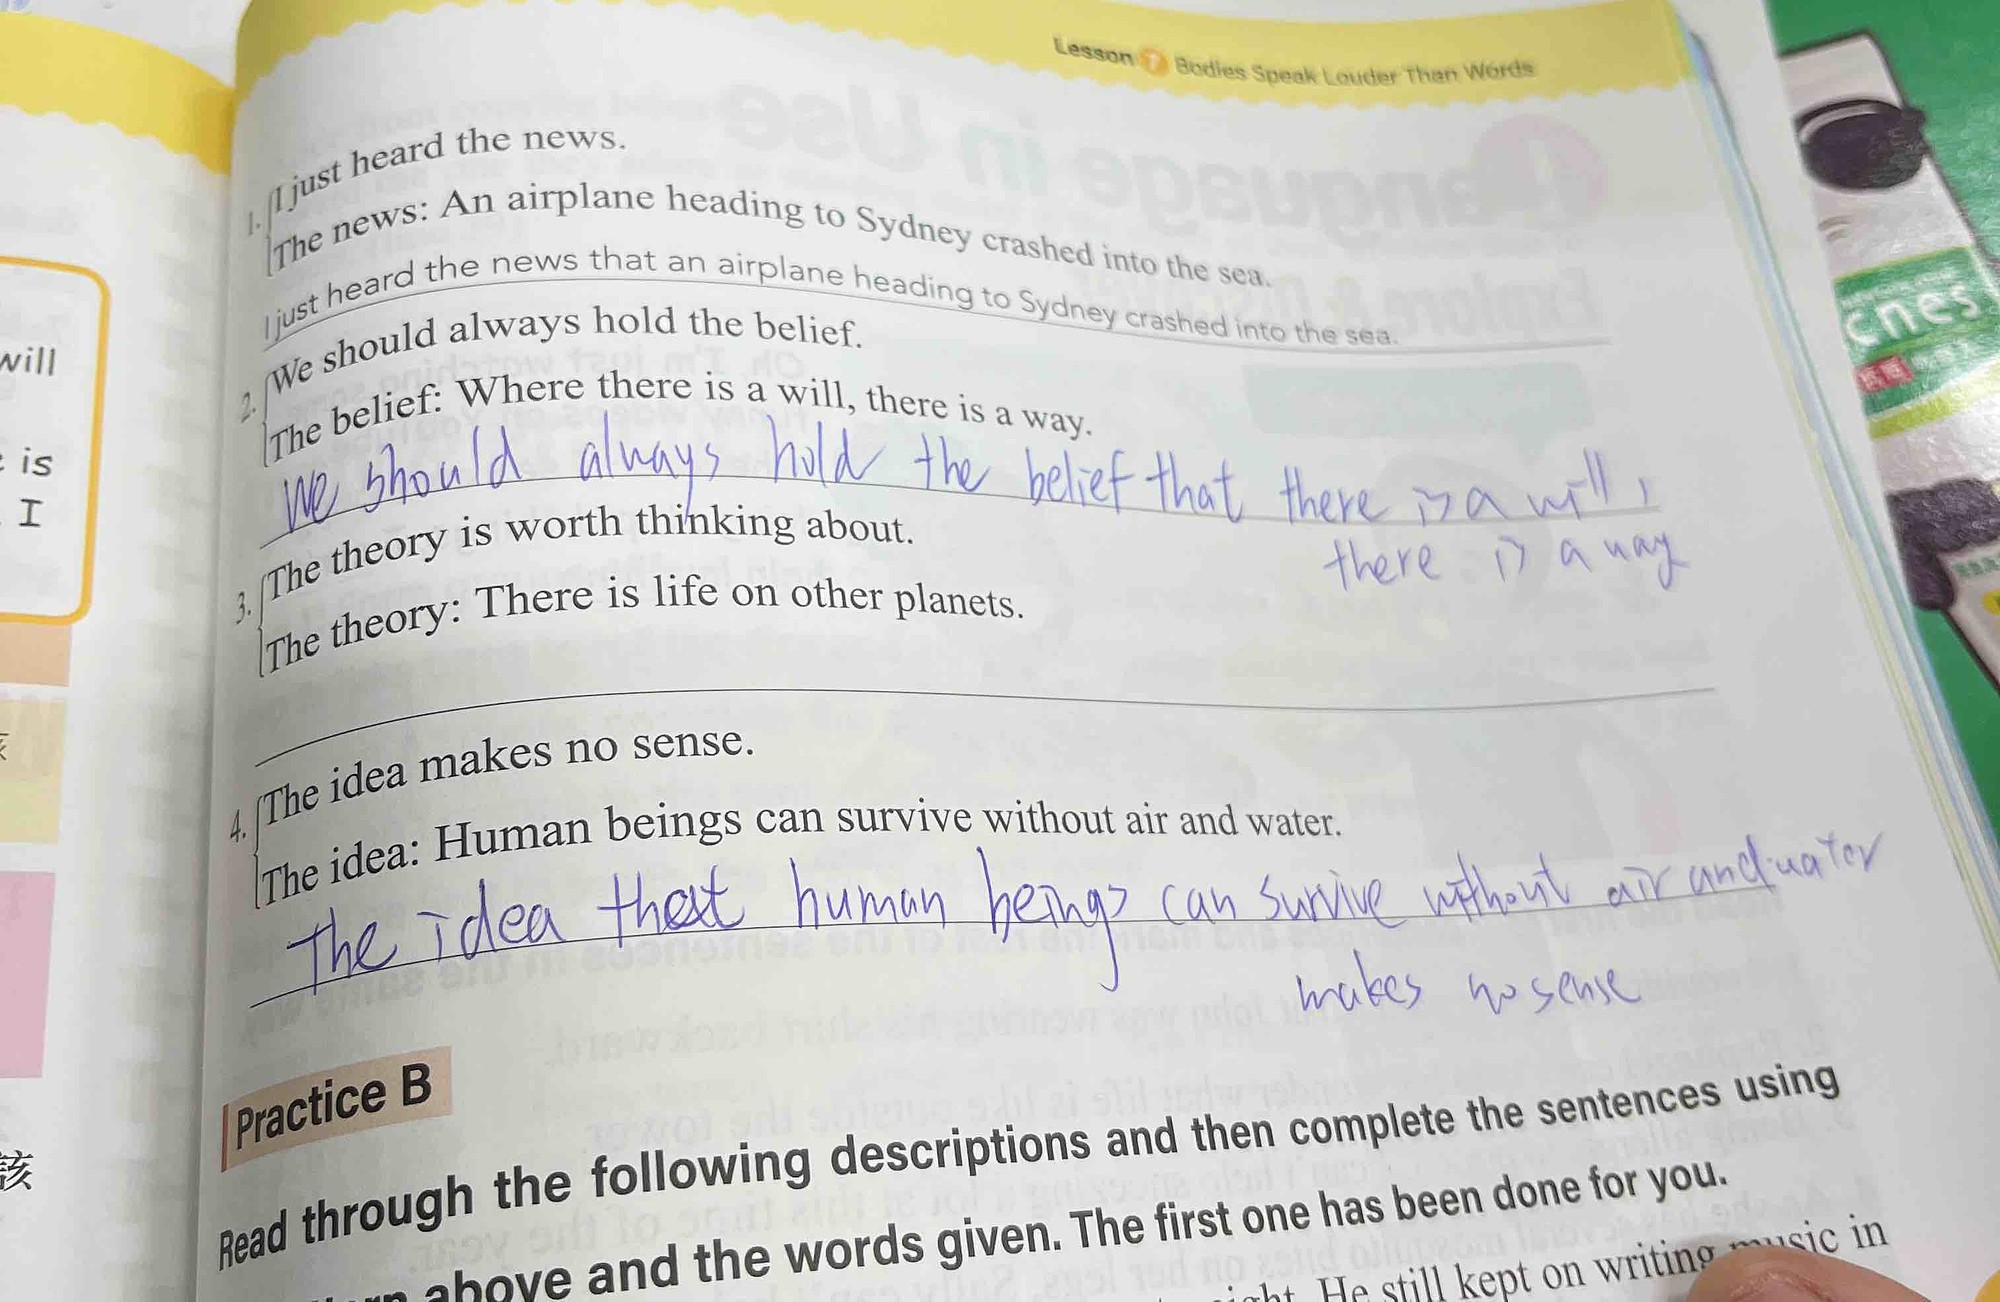 Lesson 7 Bodies Speak Louder Than Words
1. I just heard the news.
The news: An airplane heading to Sydney crashed into the sea.
I just heard the news that an airplane heading to Sydney crashed into the sea.
2. We should always hold the belief.
The belief: Where there is a will, there is a way.
We should always hold the belief that there is a will,
there is a way
3. The theory is worth thinking about.
The theory: There is life on other planets.
4. The idea makes no sense.
The idea: Human beings can survive without air and water.
The idea that human beings can survive without air and water
makes no sense
Practice B
Read through the following descriptions and then complete the sentences using
above and the words given. The first one has been done for you.
He still kept on writing music in
will
is
I
該
cnes